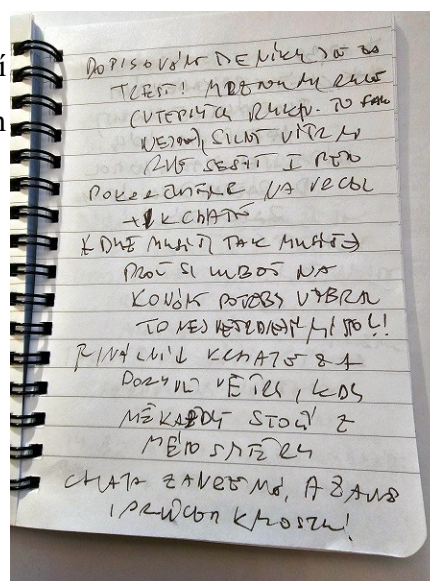 í
DOPISOVÁNÍ DENÍKU JE ZA
TREST! MRZNOU MI RUCE
CVTEŘINCH RUKU. TO FAKT
NEJDE, SILNÝ VÍTR MI
RVE SEŠIT I PERO
POKRAČUJEME NA VRCHOL
+ K CHATĚ
KDYŽ MUSÍŠ TAK MUSÍŠ
PROČ SI LUBOŠ NA
KONÁNÍ POTŘEBY VYBRAL
TO NEJVĚTRNĚJŠÍ MÍSTO!!
FINÁLNÍ K CHATĚ ZA
PORYVŮ VĚTRU, KDY
MĚ KAŽDÝ STOČÍ Z
MÉHO SMĚRU
CHATA ZAVŘENÁ, A ZASE
I PRŮCHOD K MOSTU!